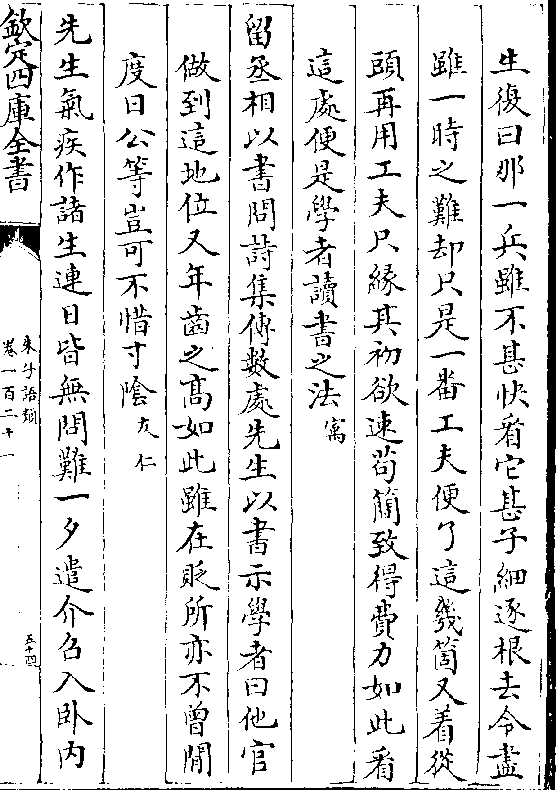 生復曰那一兵雖不甚快看它甚子細逐根去令盡
雖一時之難却只是一番工夫便了這幾箇又着從
頭再用工夫只緣其初欲速苟簡致得費力如此看
這處便是學者讀書之法㝢
留丞相以書問詩集傳數處先生以書示學者曰他官
做到這地位又年齒之高如此雖在貶所亦不曾閒
度日公等豈可不惜寸陰友仁
先生氣疾作諸生連日皆無問難一夕遣介召入卧内
欽定四庫全書
朱子語類
卷一百二十一
五十四